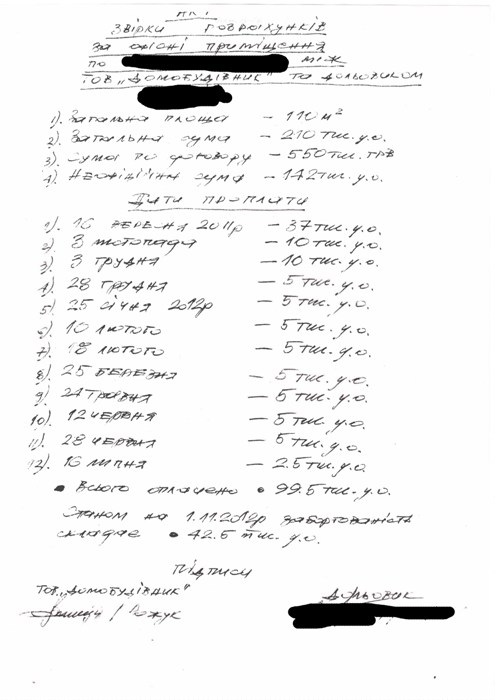 АКТ
Звірки розрахунків
за офісні приміщення
по між
ТОВ „Домобудівник" та дольовиком
1). Загальна площа – 110 м²
2). Загальна сума – 210 тис. у.о.
3). Сума по договору – 550 тис. грв
4). Неофіційна сума – 142 тис. у.о.
Дати проплати
1). 16 березня 2011р – 37 тис. у.о.
2). 3 листопада – 10 тис. у.о.
3). 3 грудня – 10 тис. у.о.
4). 28 грудня – 5 тис. у.о.
5). 25 січня 2012р – 5 тис. у.о.
6). 10 лютого – 5 тис. у.о.
7). 18 лютого – 5 тис. у.о.
8). 25 березня – 5 тис. у.о.
9). 24 травня – 5 тис. у.о.
10). 12 червня – 5 тис. у.о.
11). 28 червня – 5 тис. у.о.
12). 16 липня – 2.5 тис. у.о.
• Всього оплачено • 99.5 тис. у.о.
Станом на 1.11.2012р заборгованість
складає • 42.5 тис. у.о.
Підписи
ТОВ „Домобудівник" Дольовик
/ Рожук